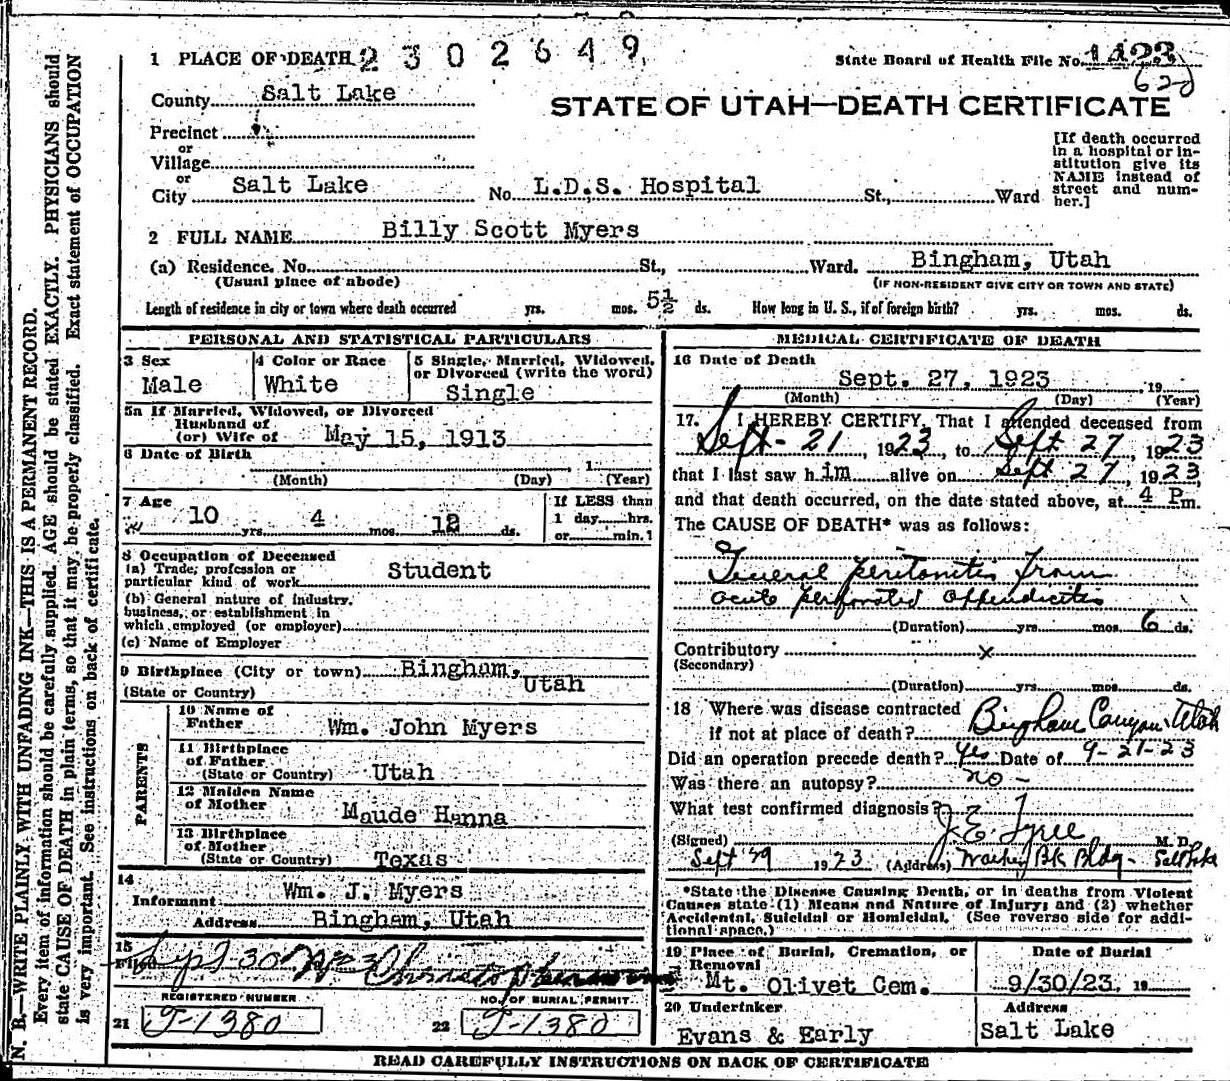 1 PLACE OF DEATH 2302649
State Board of Health File No. 1423
620
County Salt Lake
STATE OF UTAH—DEATH CERTIFICATE
Precinct
or
Village
or
City Salt Lake No. L.D.S. Hospital St., Ward
[If death occurred
in a hospital or in-
stitution give its
NAME instead of
street and num-
ber.]
2 FULL NAME Billy Scott Myers
(a) Residence. No. St., Ward. Bingham, Utah
(Usual place of abode) (IF NON-RESIDENT GIVE CITY OR TOWN AND STATE)
Length of residence in city or town where death occurred yrs. mos. 5½ ds. How long in U. S., if of foreign birth? yrs. mos. ds.
PERSONAL AND STATISTICAL PARTICULARS
3 Sex 4 Color or Race 5 Single, Married, Widowed,
or Divorced (write the word)
Male White Single
5a If Married, Widowed, or Divorced
Husband of
(or) Wife of May 15, 1913
6 Date of Birth , 1
(Month) (Day) (Year)
7 Age If LESS than
10 yrs. 4 mos. 12 ds. 1 day hrs.
or min.?
8 Occupation of Deceased
(a) Trade, profession or
particular kind of work Student
(b) General nature of industry,
business, or establishment in
which employed (or employer)
(c) Name of Employer
9 Birthplace (City or town) Bingham,
(State or Country) Utah
PARENTS
10 Name of
Father Wm. John Myers
11 Birthplace
of Father
(State or Country) Utah
12 Maiden Name
of Mother Maude Hanna
13 Birthplace
of Mother
(State or Country) Texas
14
Informant Wm. J. Myers
Address Bingham, Utah
15
Filed Sept 30 1923
REGISTERED NUMBER NO. OF BURIAL PERMIT
21 T-1380 22 T-1380
MEDICAL CERTIFICATE OF DEATH
16 Date of Death
Sept. 27, 1923 19
(Month) (Day) (Year)
17. I HEREBY CERTIFY, That I attended deceased from
Sept - 21, 1923, to Sept 27, 1923
that I last saw h im alive on Sept 27, 1923,
and that death occurred, on the date stated above, at 4 P m.
The CAUSE OF DEATH* was as follows:
General peritonitis from
acute perforated appendicitis
(Duration) yrs. mos. 6 ds.
Contributory x
(Secondary)
(Duration) yrs. mos. ds.
18 Where was disease contracted
if not at place of death? Bingham Canyon, Utah
Did an operation precede death? Yes Date of 9-21-23
Was there an autopsy? no -
What test confirmed diagnosis?
(Signed) J. E. Tyree M. D.
Sept 29 1923 (Address) Bk Bldg - Salt Lake
*State the Disease Causing Death, or in deaths from Violent
Causes state (1) Means and Nature of Injury; and (2) whether
Accidental, Suicidal or Homicidal. (See reverse side for addi-
tional space.)
19 Place of Burial, Cremation, or
Removal Date of Burial
Mt. Olivet Cem. 9/30/23. 19
20 Undertaker Address
Evans & Early Salt Lake
READ CAREFULLY INSTRUCTIONS ON BACK OF CERTIFICATE
N. B.—WRITE PLAINLY WITH UNFADING INK—THIS IS A PERMANENT RECORD.
Every item of information should be carefully supplied. AGE should be stated EXACTLY. PHYSICIANS should
state CAUSE OF DEATH in plain terms, so that it may be properly classified. Exact statement of OCCUPATION
is very important. See instructions on back of certificate.